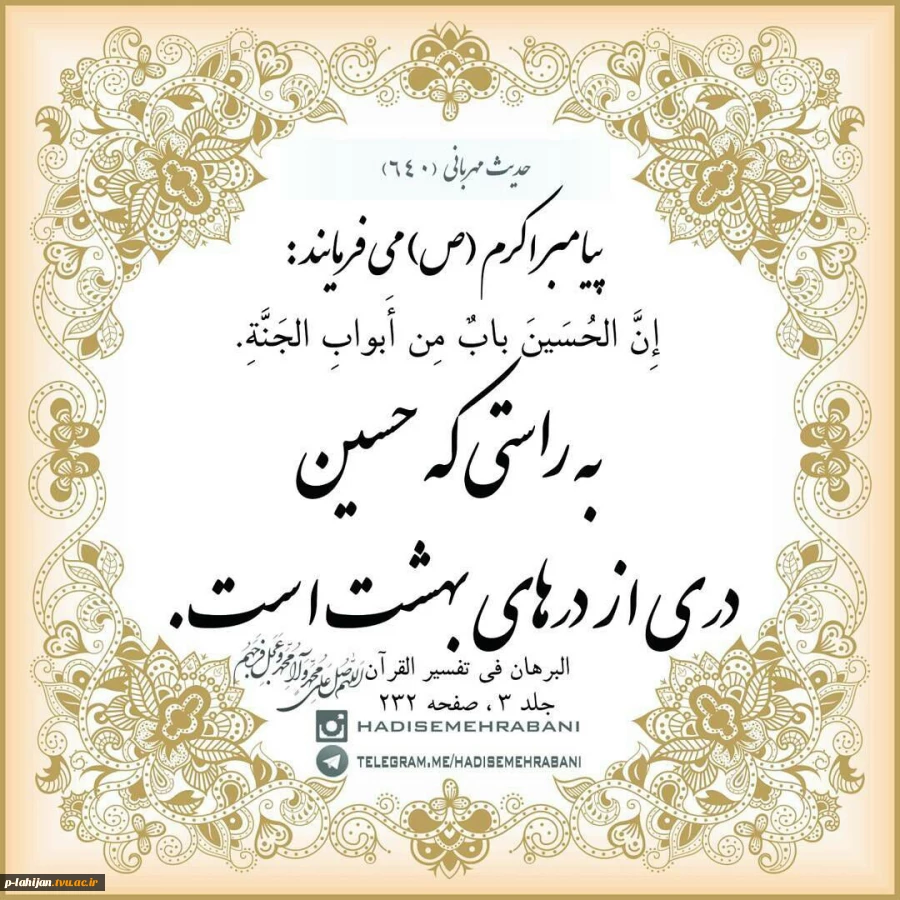 حدیث مهربانی (٦٤٠)
پیامبر اکرم (ص) می فرمایند:
إِنَّ الحُسَینَ بابٌ مِن أَبوابِ الجَنَّةِ.
به راستی که حسین
دری از درهای بهشت است.
البرهان فی تفسیر القرآن
جلد ۳، صفحه ۲۳۲
اللّهُمَّ صَلِّ عَلی مُحَمَّدٍ وَ آلِ مُحَمَّدٍ وَ عَجِّل فَرَجَهُم
HADISEMEHRABANI
TELEGRAM.ME/HADISEMEHRABANI
p-lahijan.tvu.ac.ir